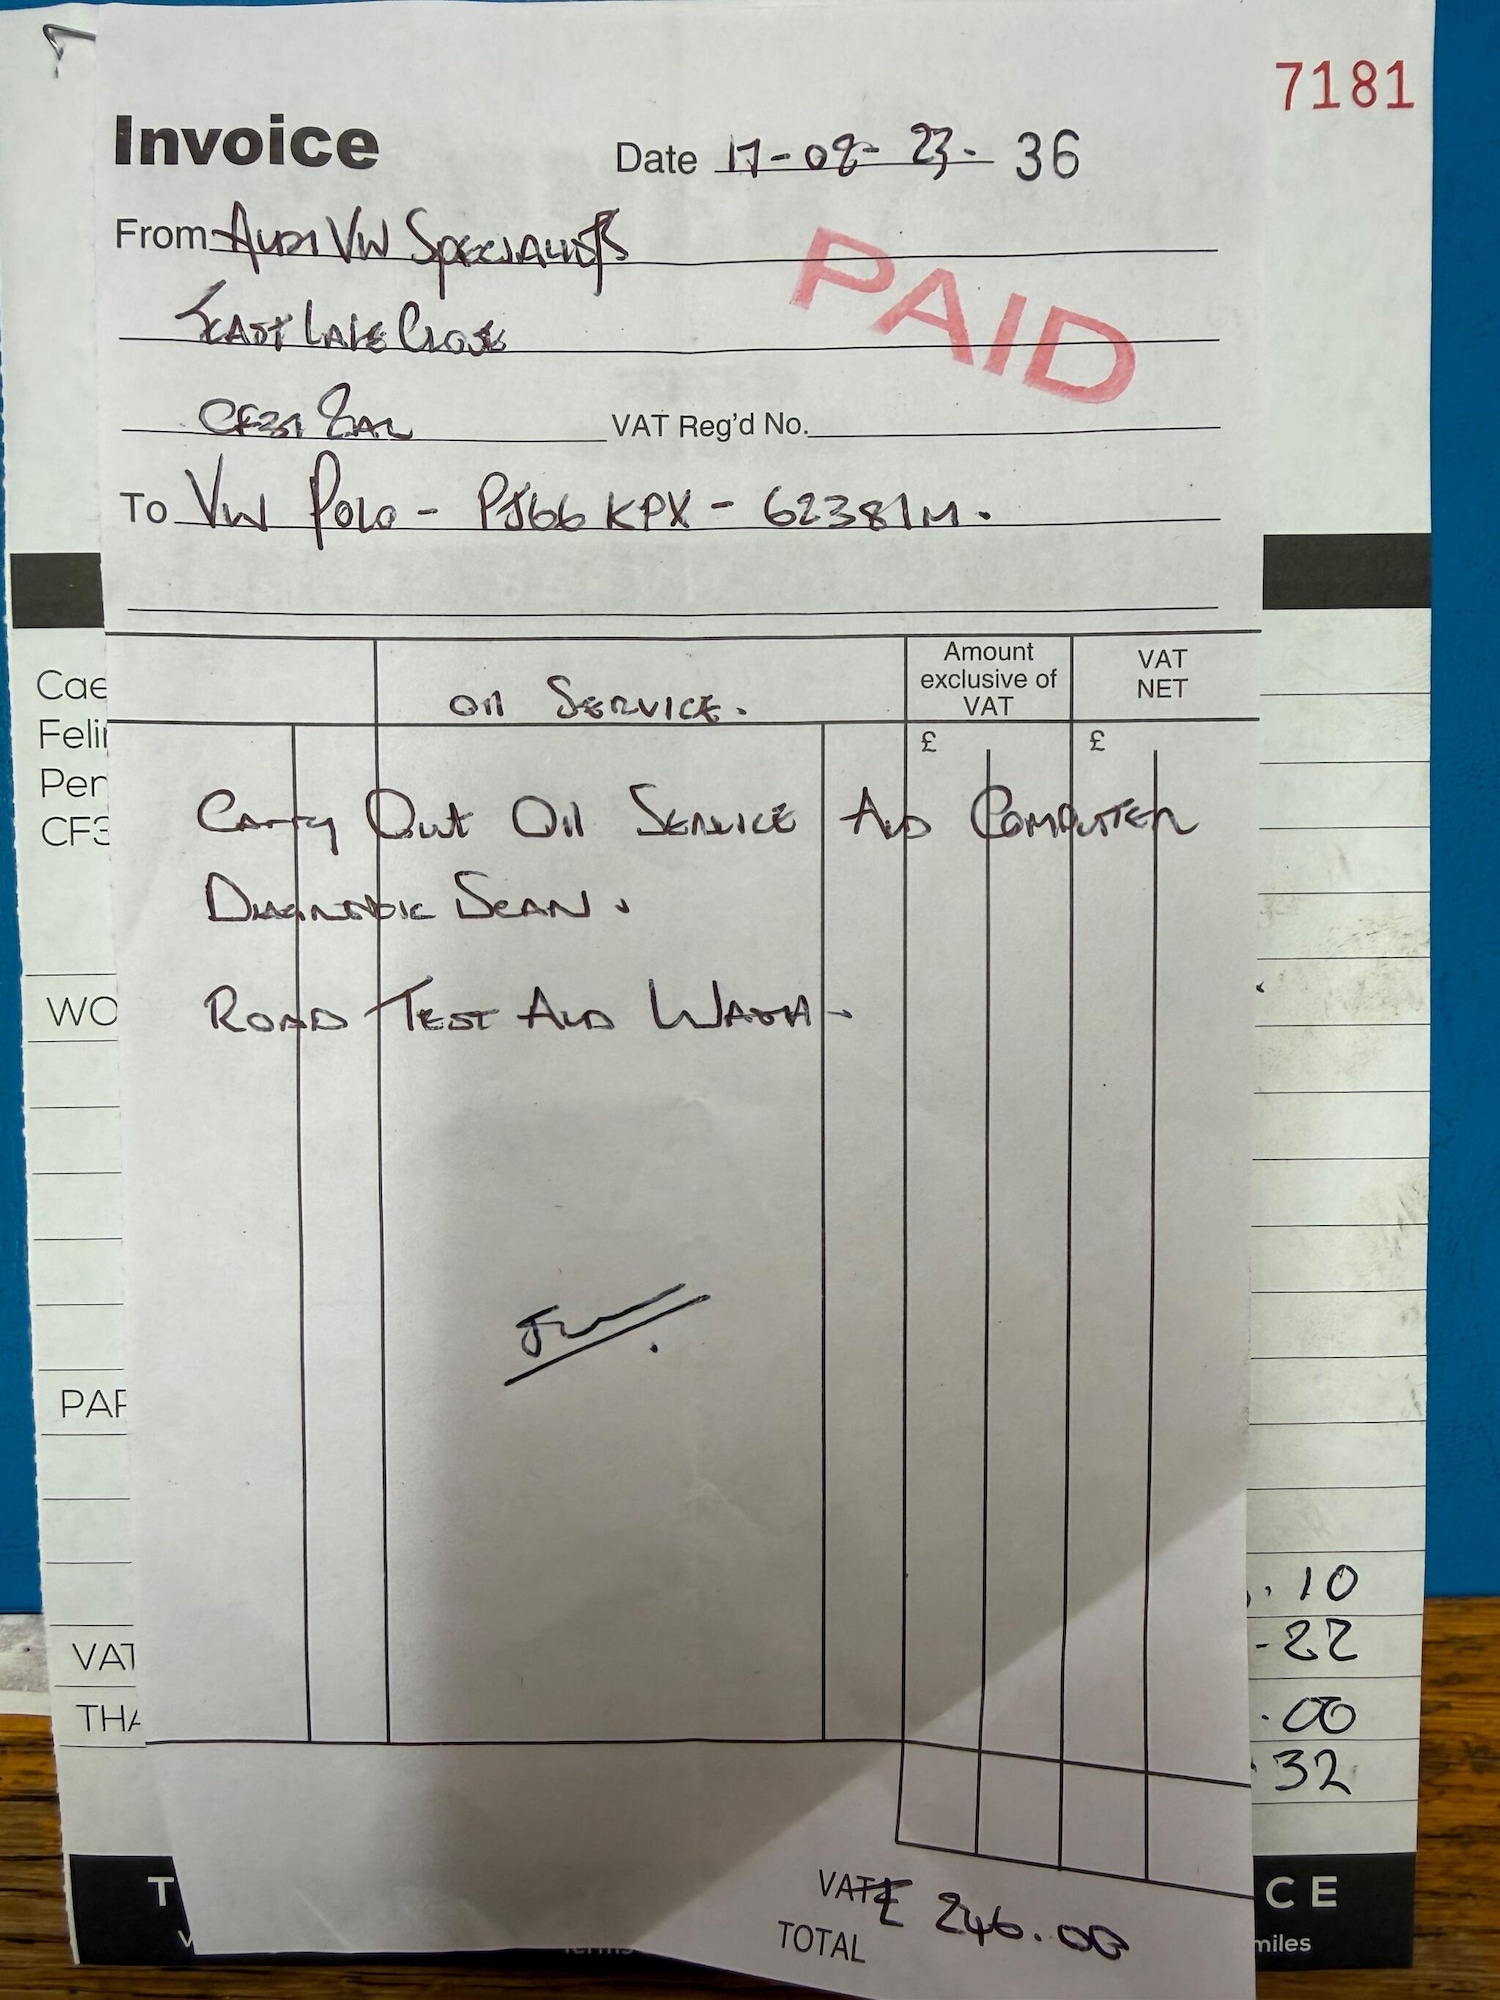 7181
Invoice
Date 17-08-23. 36
From Audi VW Specialists
PAID
Lake Close
CF31
VAT Reg'd No.
To VW Polo - PJ66 KPX - 62381M.
Amount exclusive of VAT
VAT NET
Oil Service.
£ £
Carry Out Oil Service And Computer
Diagnostic Scan.
Road Test And Wash.
Cae
Felin
Pen
CF3
WO
PAR
VAT
THA
. 10
-22
.00
32
VAT £ 246.00
TOTAL
T
CE
miles